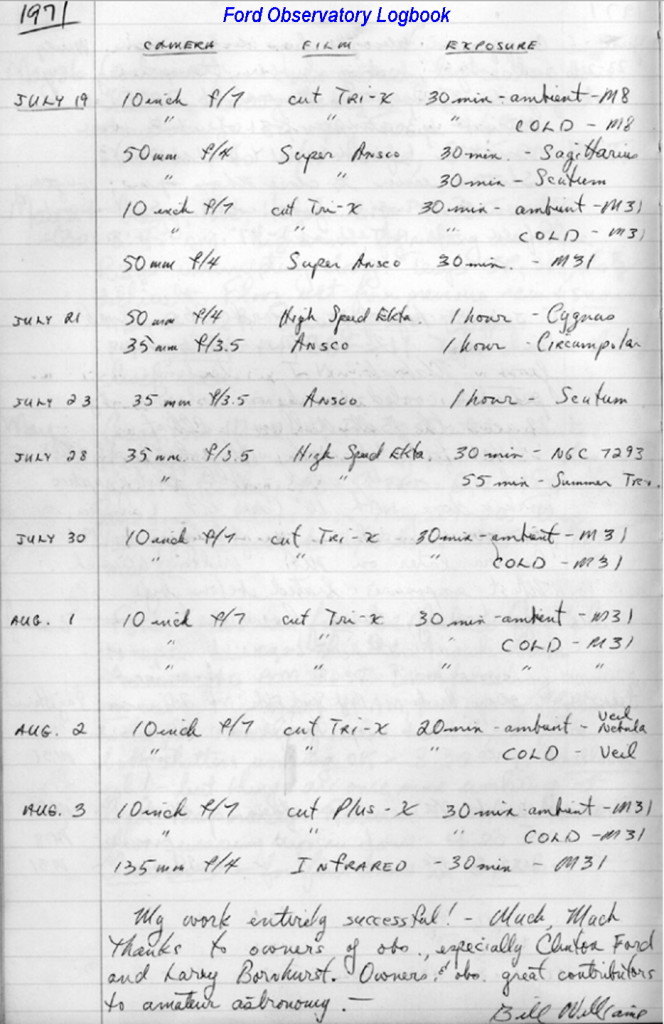 1971
Ford Observatory Logbook
CAMERA FILM EXPOSURE
JULY 19 10 inch f/7 cut TRI-X 30 min - ambient - M8
" " " COLD - M8
50mm f/4 Super Ansco 30 min. - Sagittarius
" " 30 min - Scutum
10 inch f/7 cut Tri-X 30 min - ambient - M31
" " " COLD - M31
50 mm f/4 Super Ansco 30 min. - M31
JULY 21 50 mm f/4 High Speed Ekta. 1 hour - Cygnus
35 mm f/3.5 ANSCO 1 hour - Circumpolar
JULY 23 35 mm f/3.5 ANSCO 1 hour - Scutum
JULY 28 35 mm. f/3.5 High Speed Ekta. 30 min - NGC 7293
" " 55 min - Summer Tri.
JULY 30 10 inch f/7 cut TRI-X 30 min - ambient - M31
" " " COLD - M31
AUG. 1 10 inch f/7 cut Tri-X 30 min - ambient - M31
" " " COLD - M31
" " " " "
AUG. 2 10 inch f/7 cut TRI-X 20 min - ambient - Veil Nebula
" " " COLD - Veil
AUG. 3 10 inch f/7 cut Plus-X 30 min ambient - M31
" " " COLD - M31
135 mm f/4 INFRARED - 30 min - M31
My work entirely successful! - Much, Much
Thanks to owners of obs., especially Clinton Ford
and Larry Bornhurst. Owners of obs. great contributors
to amateur astronomy. -
Bill Williams